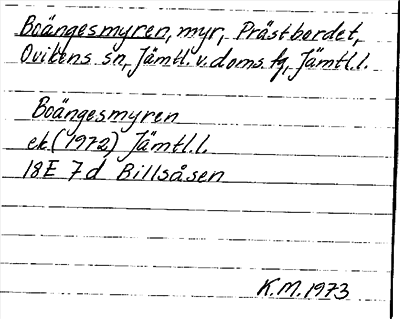 Boängesmyren, myr, Prästbordet,
Ovikens sn, Jämtl. v. doms. fg, Jämtl.l.
Boängesmyren
ek (1972) Jämtl.l.
18E 7d Billsåsen
K.M. 1973